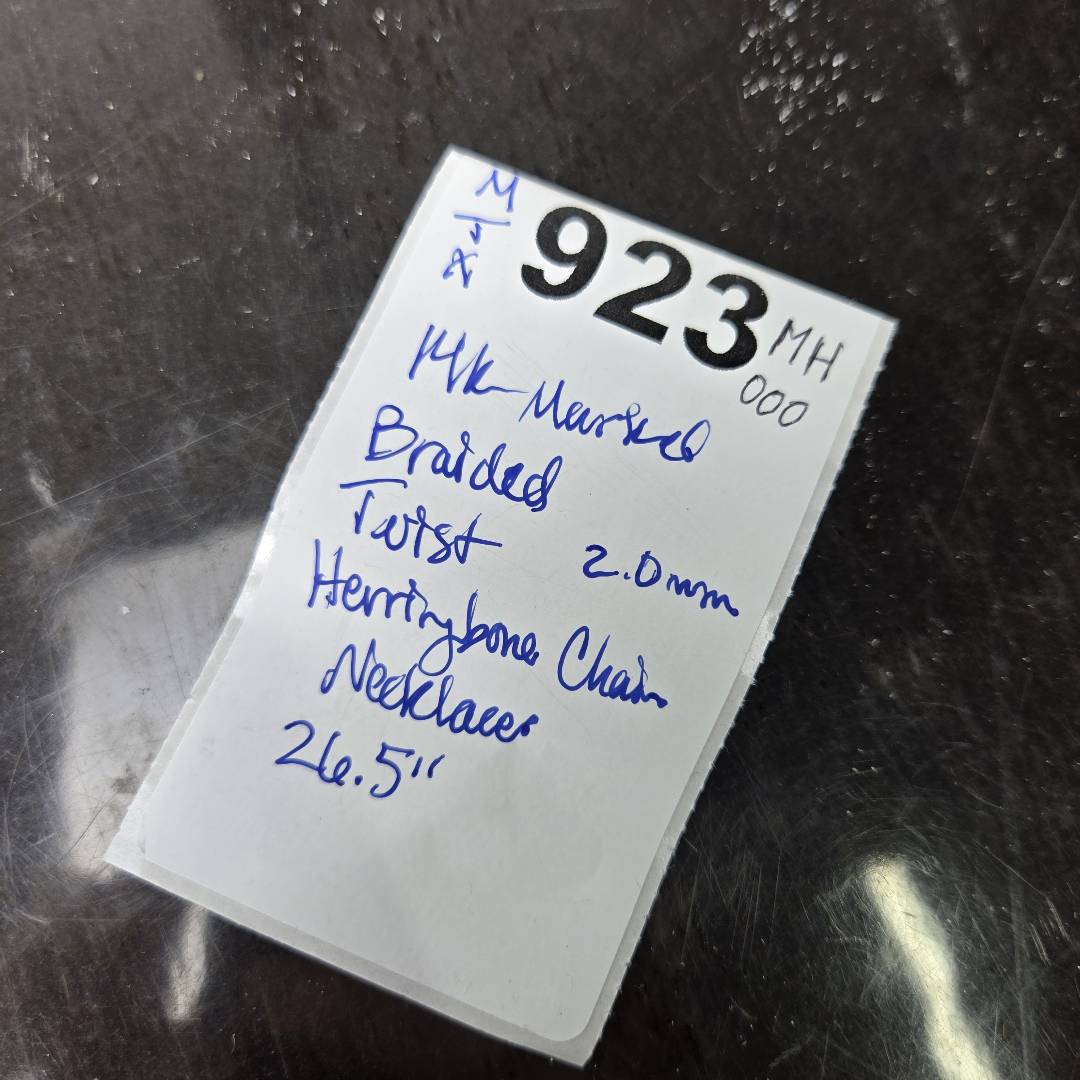 M
923
MH
000
14k Marked
Braided
Twist 2.0mm
Herringbone Chain
Necklace
26.5"